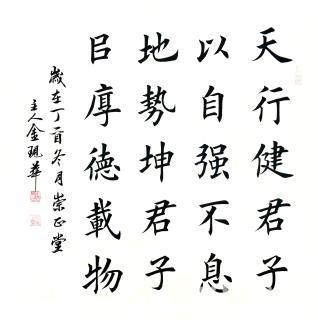 天行健君子
以自强不息
地勢坤君子
㠯厚德載物
歲在丁酉冬月崇正堂
主人金華